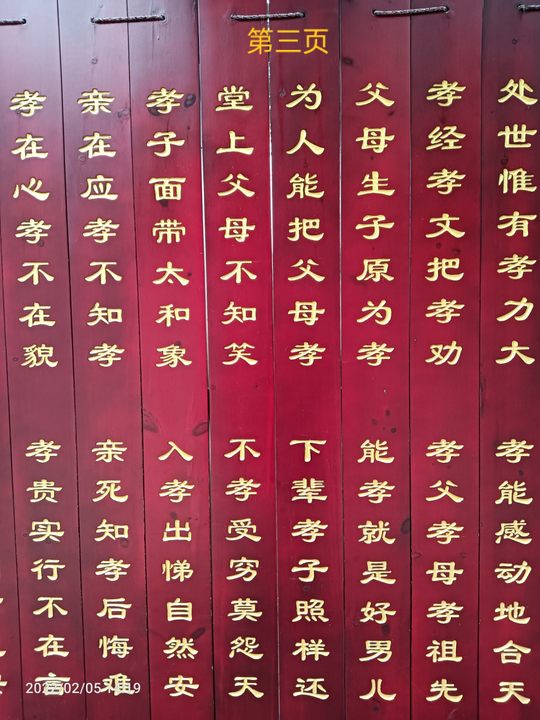 第三页
处世惟有孝力大 孝能感动地合天
孝经孝文把孝劝 孝父孝母孝祖先
父母生子原为孝 能孝就是好男儿
为人能把父母孝 下辈孝子照样还
堂上父母不知笑 不孝受穷莫怨天
孝子面带太和象 入孝出悌自然安
亲在应孝不知孝 亲死知孝后悔难
孝在心孝不在貌 孝贵实行不在言